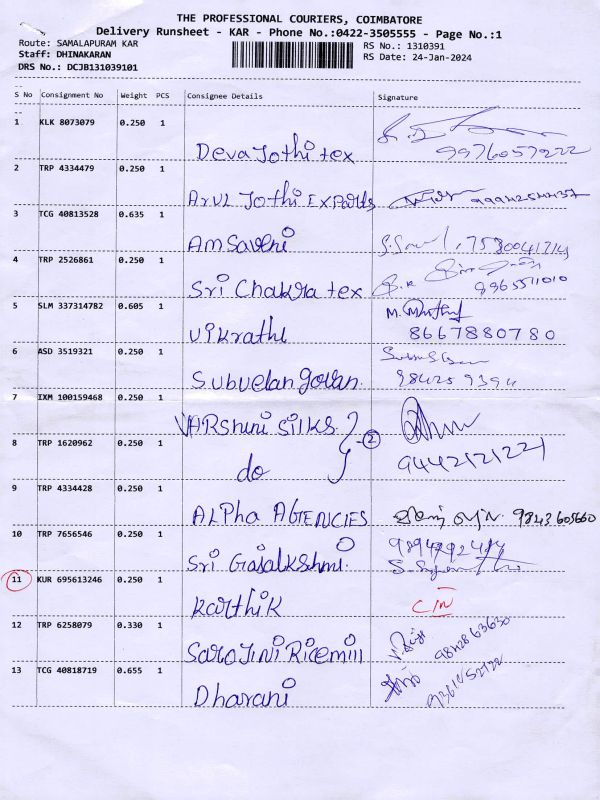 THE PROFESSIONAL COURIERS, COIMBATORE
Delivery Runsheet - KAR - Phone No.:0422-3505555 - Page No.:1
Route: SAMALAPURAM KAR
RS No.: 1310391
Staff: DHINAKARAN
RS Date: 24-Jan-2024
DRS No.: DCJB131039101
S No Consignment No Weight PCS Consignee Details Signature
1 KLK 8073079 0.250 1
Deva Jothi tex 9976057222
2 TRP 4334479 0.250 1
Arul Jothi Exports
3 TCG 40813528 0.635 1
Amsaveni
4 TRP 2526861 0.250 1
Sri Chakra tex 9965511010
5 SLM 337314782 0.605 1 M.
Vikrathi 8667880780
6 ASD 3519321 0.250 1
Subvelan govan 984259394
7 IXM 100159468 0.250 1
VARShini Silks 2
8 TRP 1620962 0.250 1
do 9442121221
9 TRP 4334428 0.250 1
ALPha AGENCIES 9843605660
10 TRP 7656546 0.250 1
Sri Gajalkshmi
11 KUR 695613246 0.250 1
Karthik
12 TRP 6258079 0.330 1
Sarojini Ricemill 9842863630
13 TCG 40818719 0.655 1
Dharani